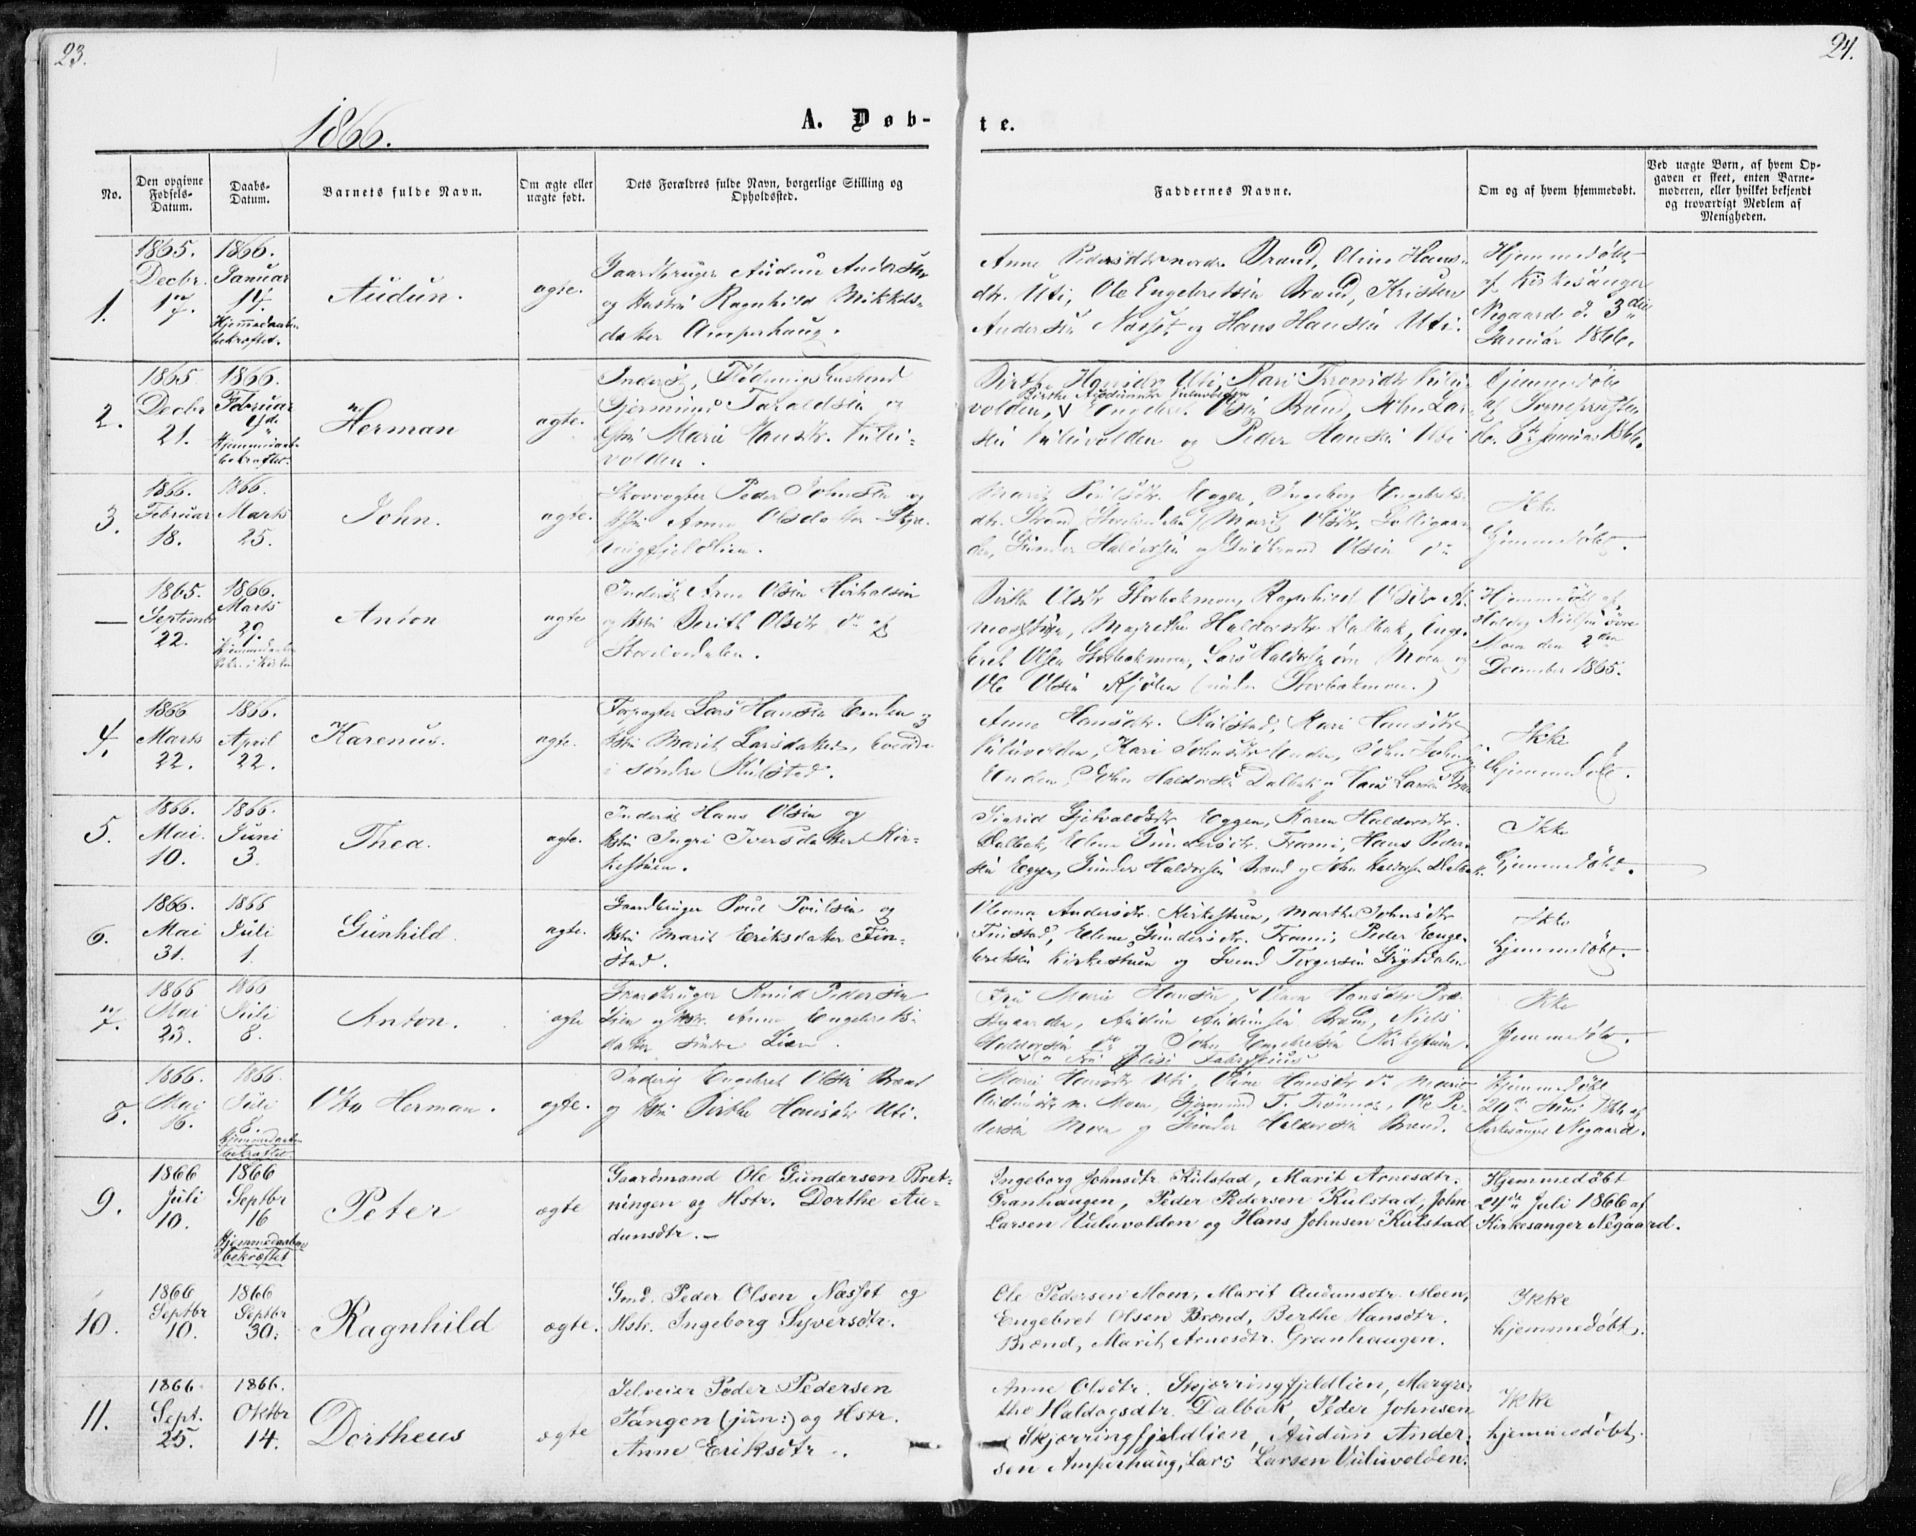 23.
24.
1866.
A. Døb-
te.
No.
Den opgivne Fødsels-Datum.
Daabs-Datum.
Barnets fulde Navn.
Om ægte eller uægte født.
Dets Forældres fulde Navn, borgerlige Stilling og Opholdssted.
Faddernes Navne.
Om og af hvem hjemmedøbt.
Ved uægte Børn, af hvem Opgaven er skeet, enten Barnemoderen, eller hvilket bekjendt og troværdigt Medlem af Menigheden.
1.
1865. Decbr. 17.
1866. Januar 14. Hjemmedaaben bekræftet.
Audun.
ægte.
Gaardbruger Audun Andersen
og Hustru Ragnhild Mikkels-
datter Amperhaug.
Anne Pedersdtr nordre Brænd, Oline Hans-
dtr. Uti, Ole Engebretsen Brænd, Kristen
Andersen Næsset og Hans Hansen Uti.
Hjemmedøbt
af Kirkesanger
Negaard d. 3die
Januar 1866.
2.
1865 Decbr 21.
1866. Februar Hjemmedaaben bekræftet.
Herman
ægte.
Inderst,
Gjermund Taraldsen og
Hstru Marie Hansdtr. Vulu-
volden.
Birthe Uti, Mari Vulu-
Birthe Audunsdtr Vuluvolden
volden, Engebret Olsen Brænd, John Lar-
sen Vuluvolden og Peder Hansen Uti
Hjemmedøbt
af Sognepresten
d. 6te Januar 1866.
3.
1866. Februar 18.
1866. Marts 25.
John.
ægte.
Skovvogter Peder Johnsen og
Hstru Anne Olsdatter Skjæ-
ringfjeldlien.
Marit Poulsdtr. Eggen, Ingeborg Engebrets-
dtr. Strand, Marit Olsdtr.
Gunder Haldorsen og Gudbrand Olsen do
Ikke
hjemmedøbt.
—
1865. Septembr 22.
1866. Marts 29
Anton
ægte
Inderst Arne Olsen
og Hstru Berith Olsdtr do af
Storelvdalen.
Birthe Olsdtr Storbakmoen, Ragnhild Olsdtr
Magrethe Haldorsdtr Dalbak, Enge-
bret Olsen Storbakmoen, Lars Haldorsen øvre Moen og
Ole Olsen Kjølen (under Storbakmoen.)
Hjemmedøbt af
Haldog Nielsen øvre
Moen den 2den
December 1865.
4.
1866 Marts 22.
1866. April 22.
Karenus.
ægte.
Forpagter Lars Hansen Enden og
Hstru Marit Larsdatter,
i søndre Kulstad.
Anne Hansdtr. Kulstad, Mari Hansdtr
Vuluvolden, Kari Johnsdtr Enden, John
Enden, John Haldorsen Dalbak og Hans Larsen
Ikke
hjemmedøbt.
5.
1866. Mai. 10.
1866. Juni 3.
Thea.
ægte.
Inderst Hans Olsen og
Hstru Ingri Iversdatter Kir-
kestuen.
Sigrid Gjetvaldsdtr Eggen, Karen Haldorsdtr.
Dalbak, Elene Gundersdtr. Tromi, Hans Peder-
sen Eggen, Gunder Haldorsen Brænd og John Haldorsen Dalbak.
Ikke
hjemmedøbt.
6.
1866. Mai 31.
1866 Juli 1.
Gunhild.
ægte.
Gaardbruger Poul Poulsen og
Hstru Marit Eriksdatter Fin-
stad.
Oleana Andersdtr. Kirkestuen, Marthe Johnsdtr
Finstad, Elene Gundersdtr. Tromi, Peder Enge-
bretsen Kirkestuen og Svend Torgersen Grytdalen
Ikke
hjemmedøbt.
7.
1866 Mai 23.
1866 Juli 8.
Anton.
ægte
Gaardbruger Knud Pedersen
Lien og Hstr. Anne Engebrets-
datter søndre Lien.
Fru Marie Hansen, Hansdtr
Audun Audunsen Brænd, Niels
Haldorsen do og John Engebretsen Kirkestuen.
og Fru Elise
Ikke
hjemmedøbt.
8.
1866. Mai 16.
1866. Juli 8. Hjemmedaaben bekræftet
Otto Herman.
ægte.
Inderst Engebret Olsen Brænd
og Hstru Birthe Hansdtr Uti.
Marie Hansdtr Uti, Oline Hansdtr do Marit
Audunsdtr n. Moen, Gjermund T. Trønnes, Ole Pe-
dersen Moen og Gunder Haldorsen Brænd.
Hjemmedøbt
20de Juni 1866 af
Kirkesanger Negaard.
9.
1866 Juli 10.
1866 Septbr 16 Hjemmedaaben bekræftet
Peter
ægte
Gaardmand Ole Gundersen Bret-
ningen og Hstr. Dorthe Au-
dunsdtr.—
Ingeborg Johnsdtr Kulstad, Marit Arnesdtr.
Granhaugen, Peder Pedersen Kulstad, John
Larsen Vuluvolden og Hans Johnsen Kulstad
Hjemmedøbt
24de Juli 1866 af
Kirkesanger Negaard.
10.
1866 Septbr 10.
1866 Septbr 30.
Ragnhild
ægte.
Gmd. Peder Olsen Næsset og
Hstr. Ingeborg Syversdtr.
Ole Pedersen Moen, Marit Audunsdtr. Moen,
Engebret Olsen Brænd, Berthe Hansdtr.
Brænd, Marit Arnesdtr. Granhaugen.
Ikke
hjemmedøbt.
11.
1866. Sept. 25.
1866. Oktbr 14.
Dortheus
ægte
Selveier Peder Pedersen
Tangen (jun:) og Hstr.
Anne Eriksdtr.
Anne Olsdtr. Skjærringfjeldlien, Margre-
the Haldogsdtr. Dalbak, Peder Johnsen
Skjærringfjeldlien, Audun Ander-
sen Amperhaug, Lars Larsen Vuluvolden.
Ikke
hjemmedøbt.